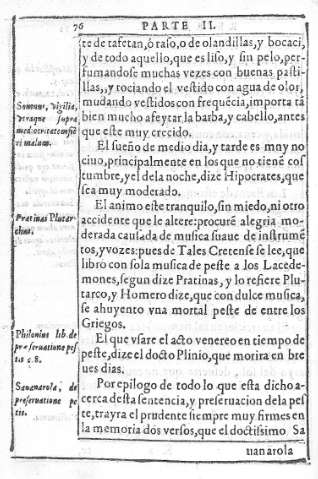 76 PARTE II.
te de tafetan, ó raso, o de olandillas, y bocaci,
y de todo aquello, que es liso, y sin pelo, per-
fumandose muchas vezes con buenas pasti-
llas,, y rociando el vestido con agua de olor,
mudando vestidos con frequẽcia, importa tã
bien mucho afeytar la barba, y cabello, antes
que este muy crecido.
El sueño de medio dia, y tarde es muy no
ciuo, principalmente en los que no tienẽ cos
tumbre, y el de la noche, dize Hipocrates, que
sea muy moderado.
El animo este tranquilo, sin miedo, ni otro
accidente que le altere: procurẽ alegria mo-
derada causada de musica suaue de instrumẽ
tos, y vozes: pues de Tales Cretense se lee, que
libro con sola musica de peste a los Lacede-
mones, segun dize Pratinas, y lo refiere Plu-
tarco, y Homero dize, que con dulce musica,
se ahuyento vna mortal peste de entre los
Griegos.
El que vsare el acto venereo en tiempo de
peste, dize el docto Plinio, que morira en bre
ues dias.
Por epilogo de todo lo que esta dicho a-
cerca desta sentencia, y preseruacion de la pes
te, trayra el prudente siempre muy firmes en
la memoria dos versos, que el doctissimo Sa
uanarola
Somnus, vigilia,
vtraque supra
modum
malum.
Pratinas Plutar-
chus.
lib. de
preseruatione pes
tis c. 8.
Sauanarola, de
preseruatione pe
stis.